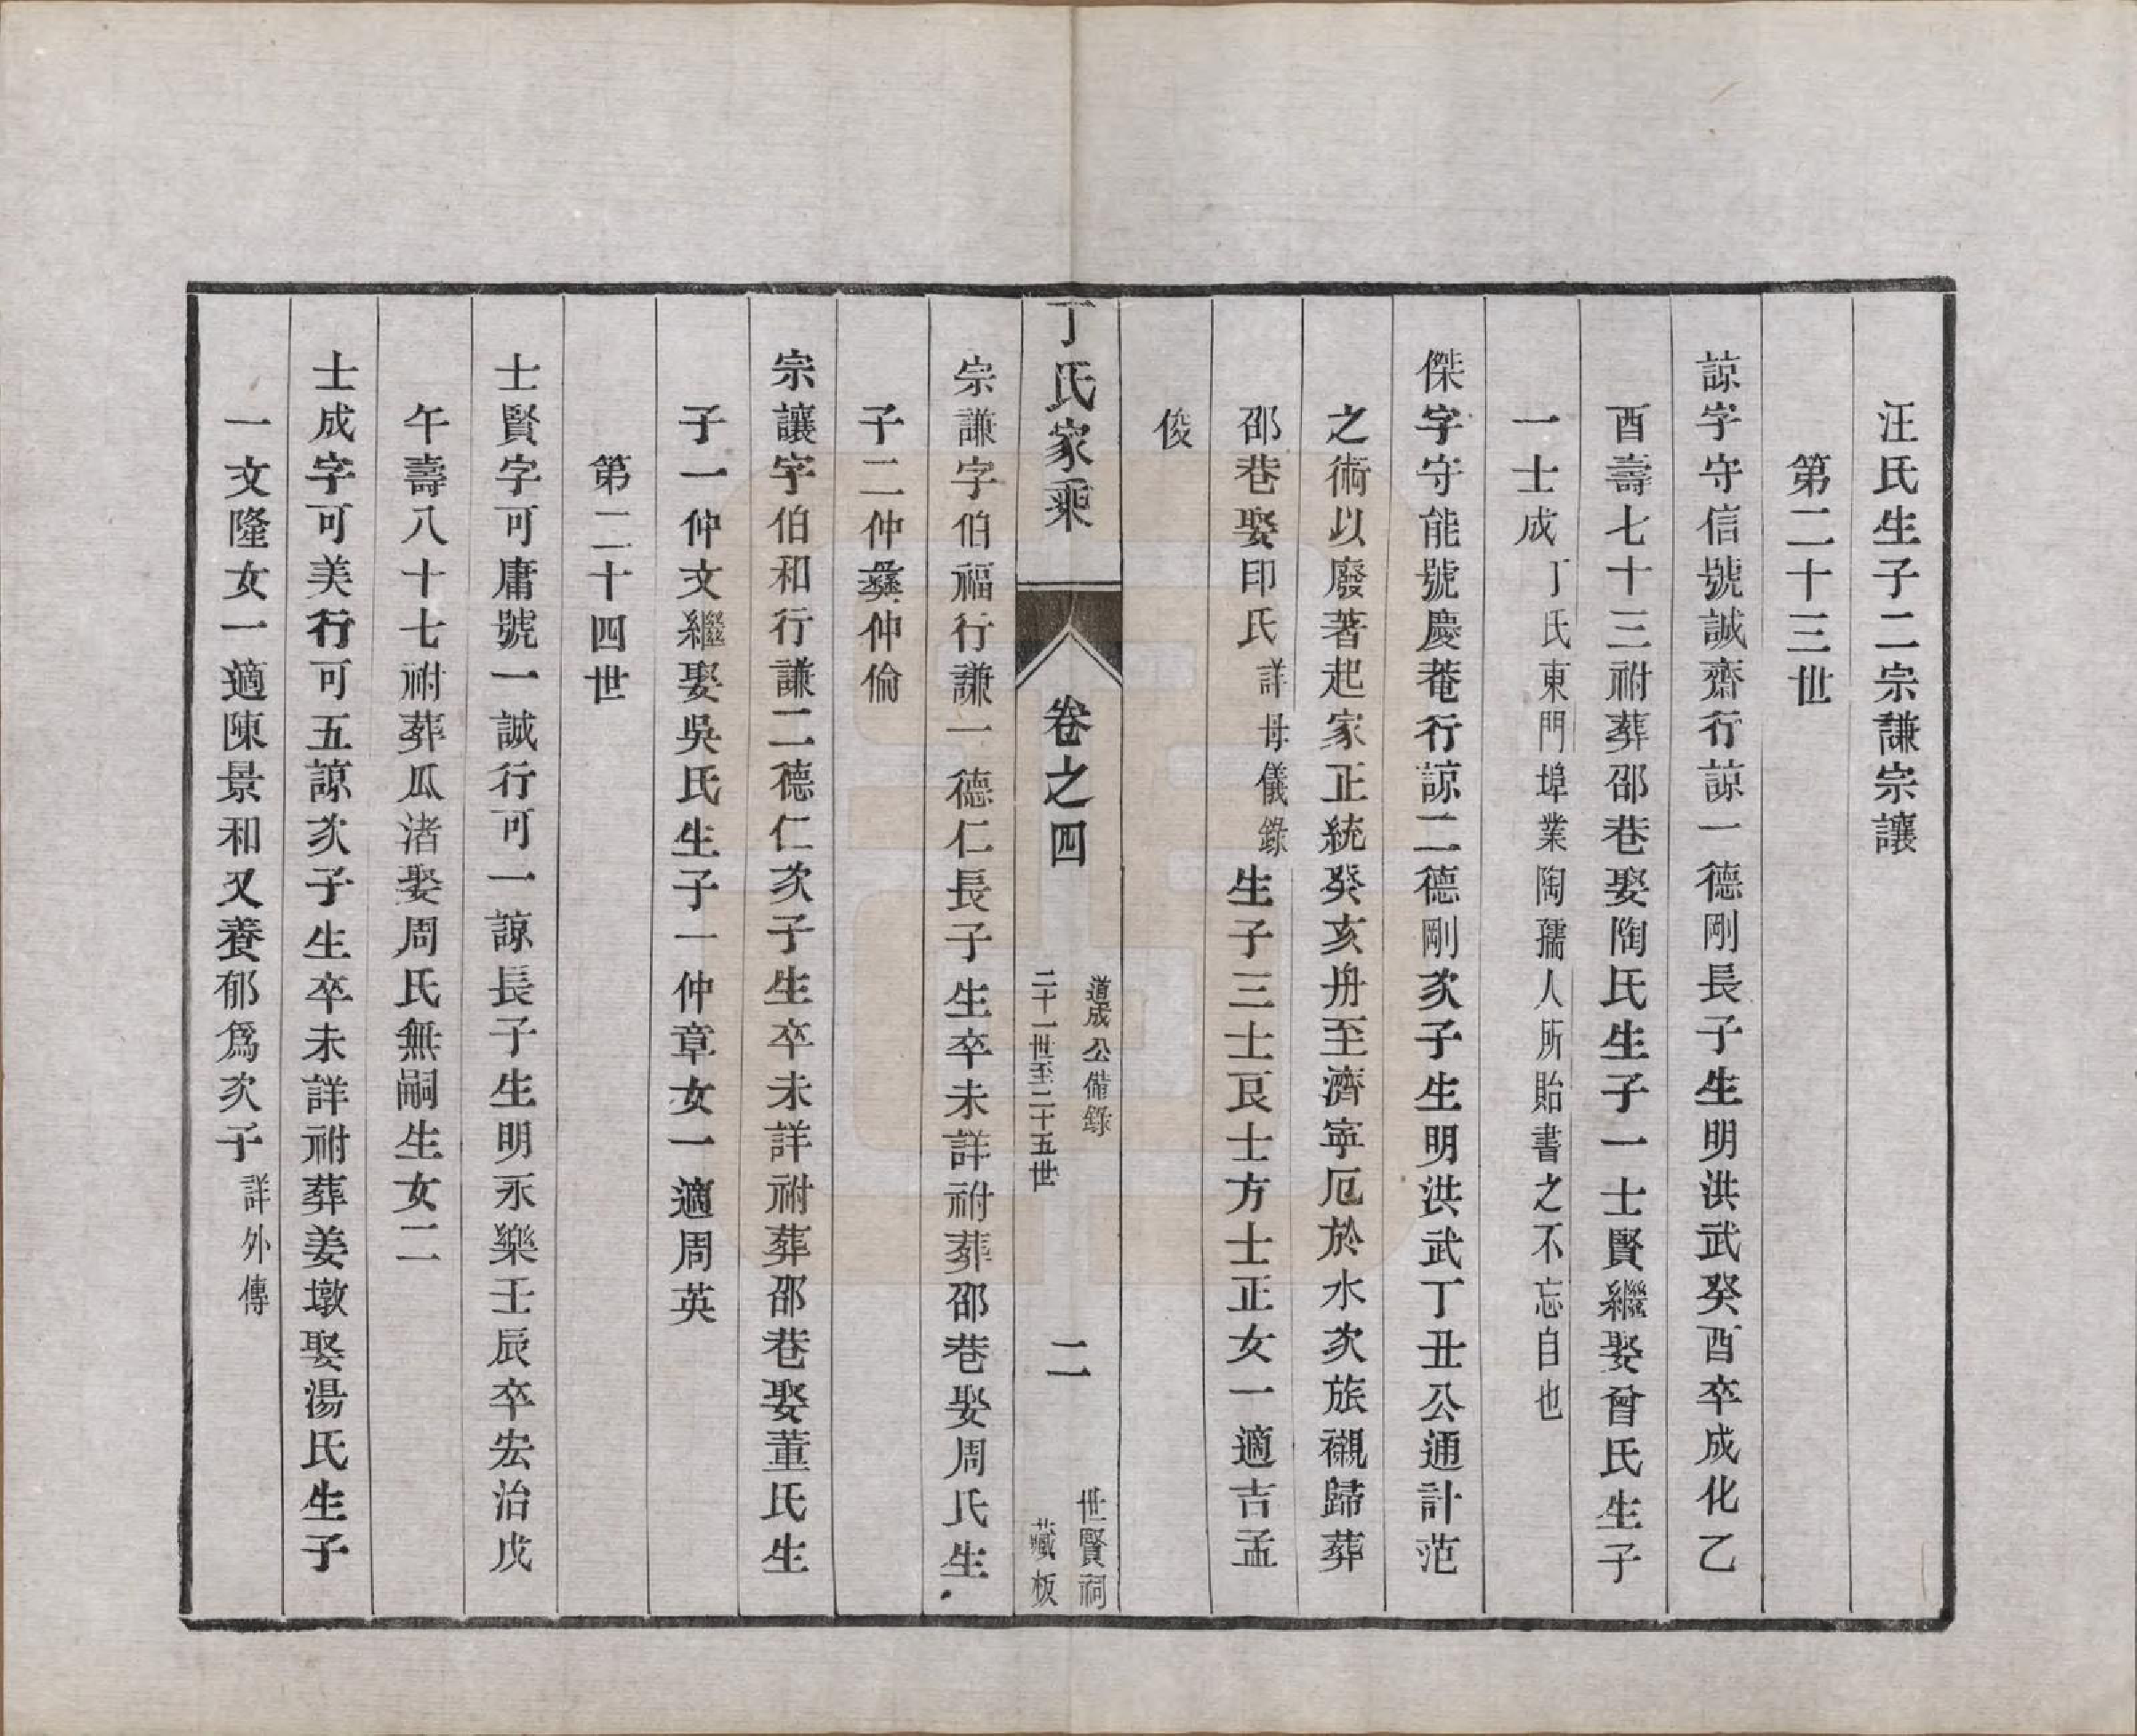 汪氏生子二宗謙宗讓
第二十三世
諒字守信號誠齋行諒一德剛長子生明洪武癸酉卒成化乙
酉壽七十三祔葬邵巷娶陶氏生子一士賢繼娶曾氏生子
一士成丁氏東門埠業陶孺人所貽書之不忘自也
傑字守能號慶菴行諒二德剛次子生明洪武丁丑公通計范
之術以廢著起家正統癸亥舟至濟寧厄於水次旅櫬歸葬
邵巷娶印氏詳母儀錄生子三士良士方士正女一適吉孟
俊
丁氏家乘
卷之四
道成公備錄
二十一世至二十五世
二
世賢祠
藏板
宗謙字伯福行謙一德仁長子生卒未詳祔葬邵巷娶周氏生
子二仲彝仲倫
宗讓字伯和行謙二德仁次子生卒未詳祔葬邵巷娶董氏生
子一仲文繼娶吳氏生子一仲章女一適周英
第二十四世
士賢字可庸號一誠行可一諒長子生明永樂壬辰卒宏治戊
午壽八十七祔葬瓜渚娶周氏無嗣生女二
士成字可美行可五諒次子生卒未詳祔葬姜墩娶湯氏生子
一文隆女一適陳景和又養郁爲次子詳外傳